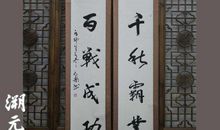 千秋霸業
百戰成功
溯元